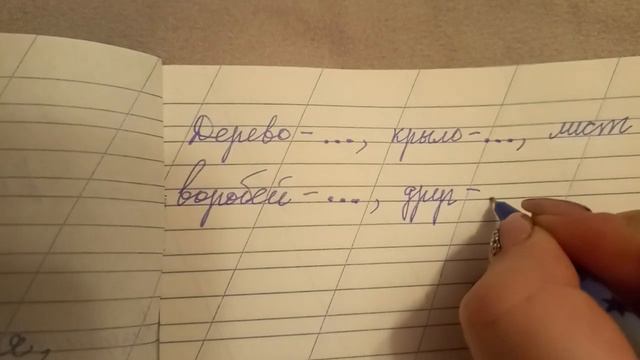 Дерево - ..., крыло - ..., лист
воробей - ..., друг -